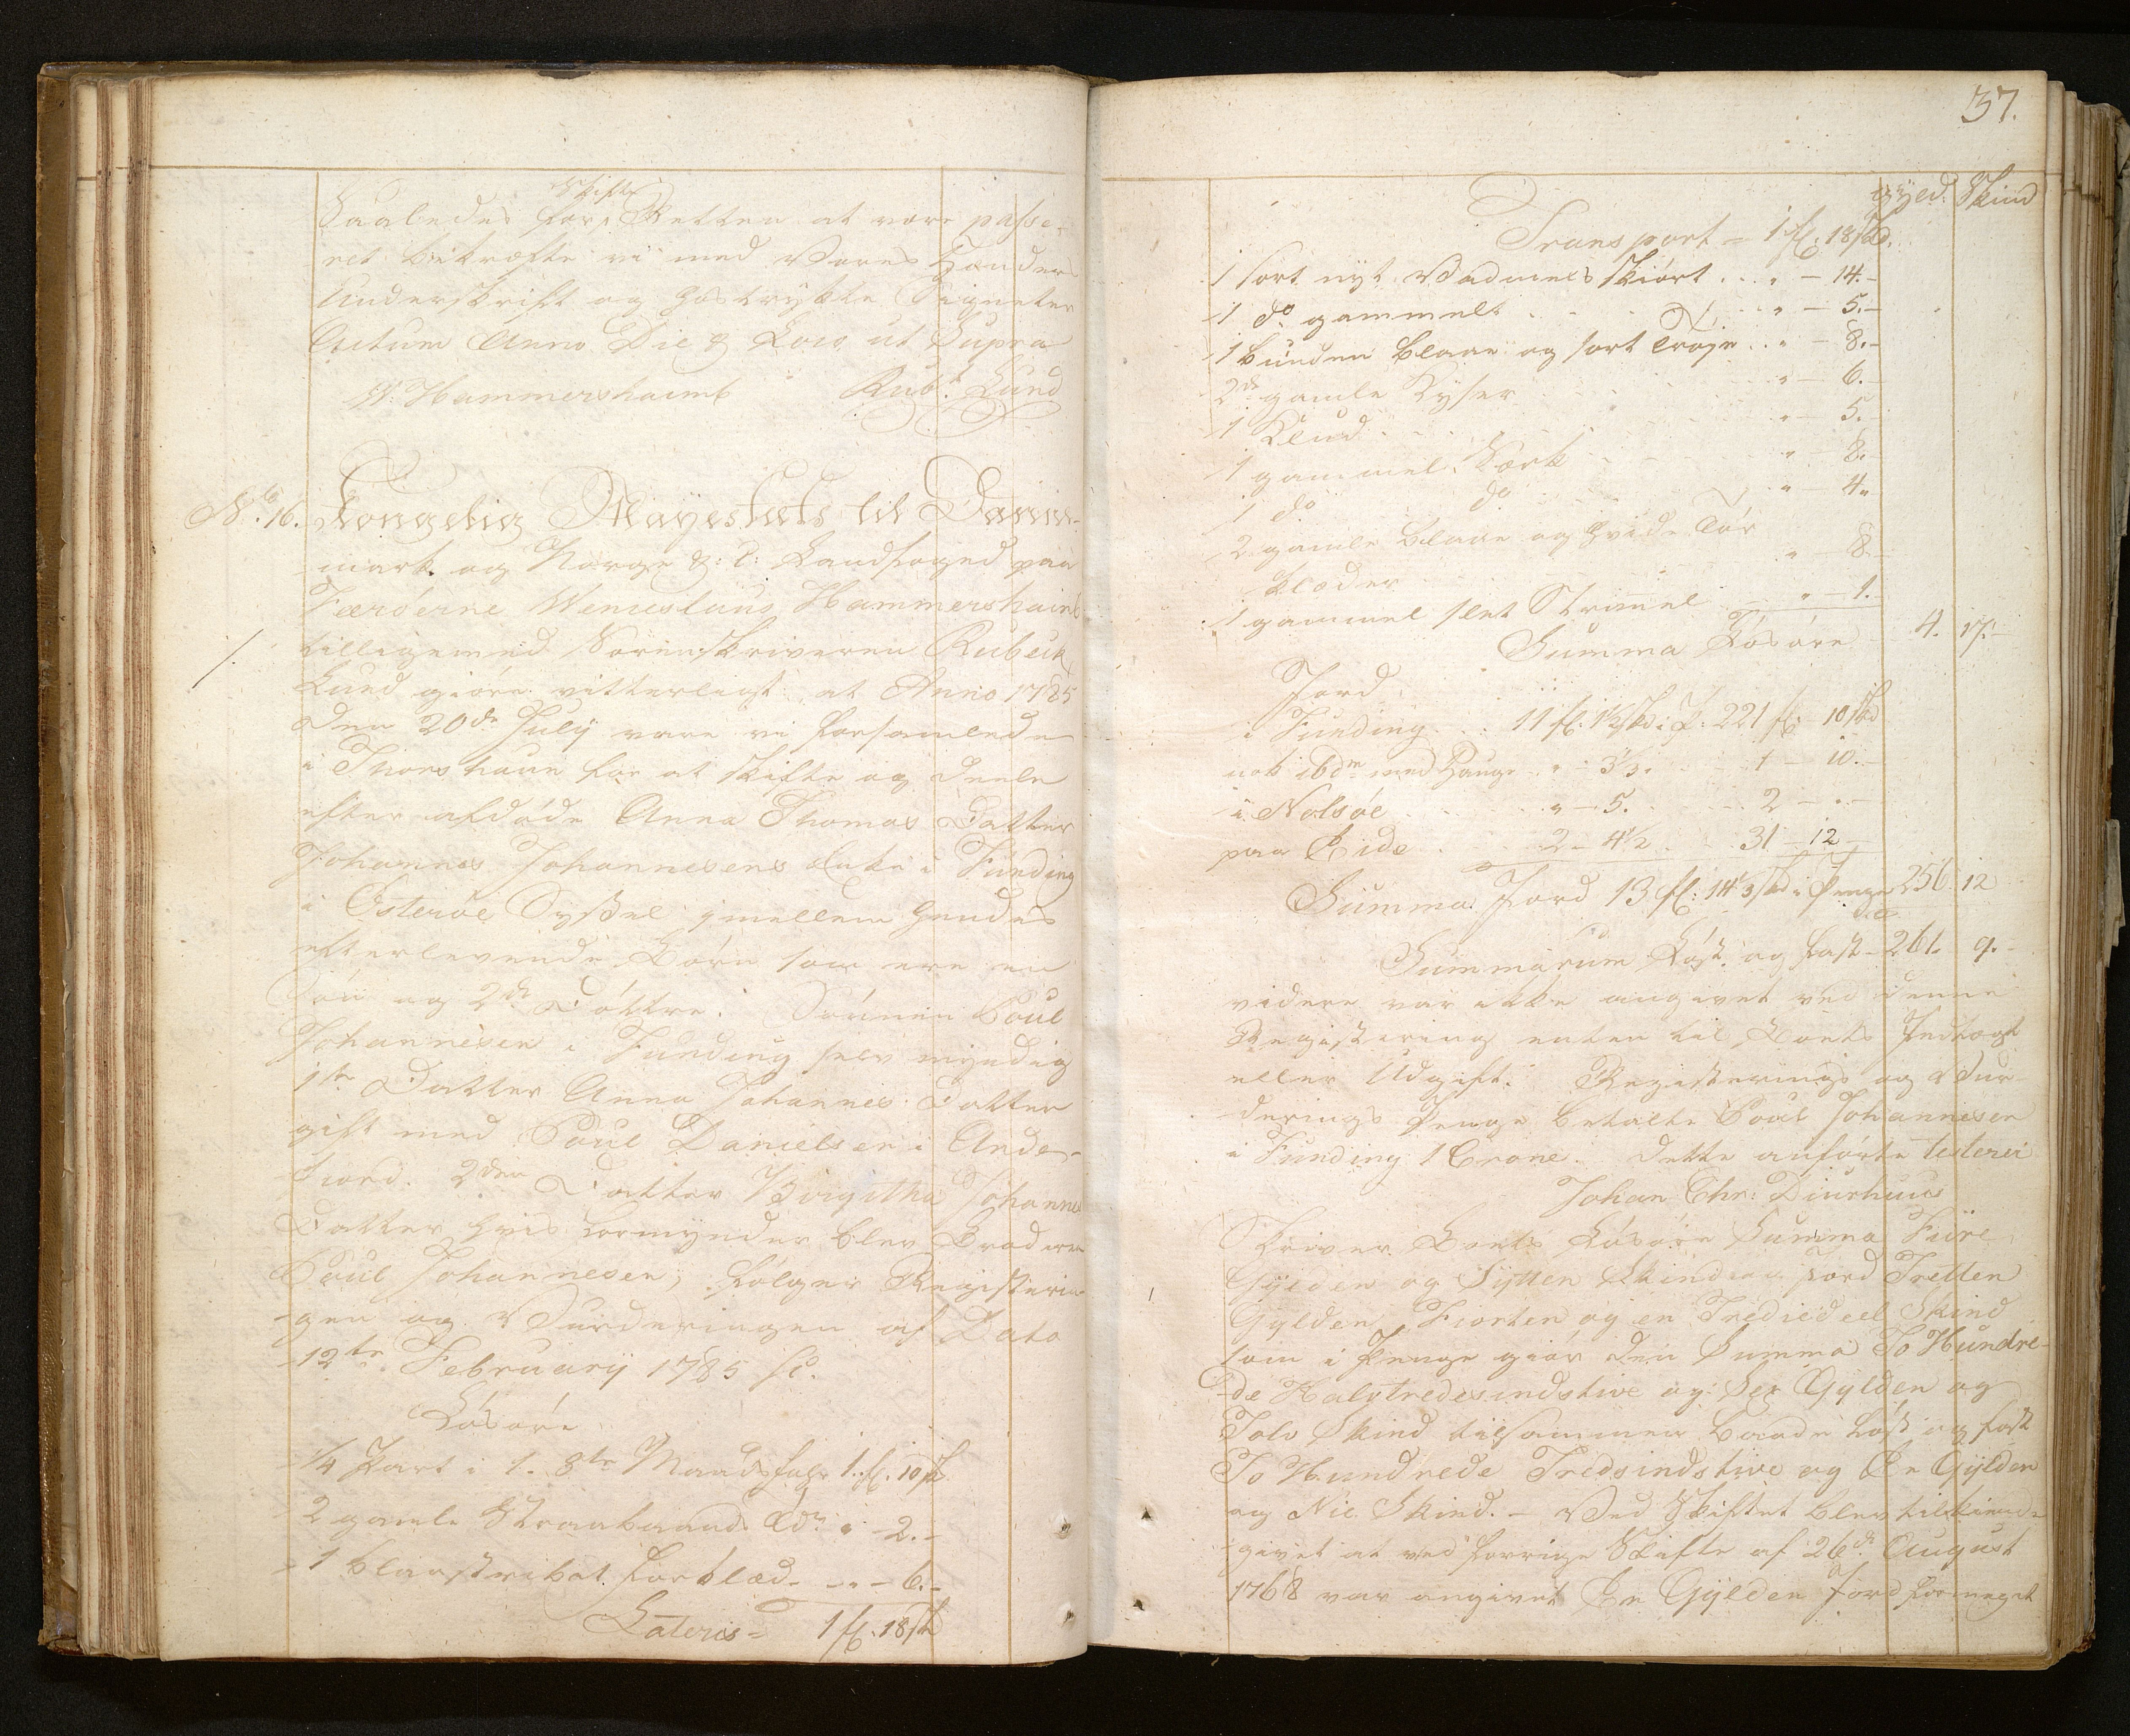 Skifte
Saaledes for Retten at være passe-
ret bekræfte vi med Vores Hænders
Underskrift og hostrykte Signeter
Actum Anno Die & Loco ut Supra
W: Hammershaimb Rubk. Lund
No. 16. Kongelig Mayestæts til Danne-
mark og Norge &: c: Landfoged paa
Færöerne Wenceslaus Hammershaimb
tilligemed Sorenskriveren Rubeck
Lund giöre vitterligt at Anno 1785
den 20de July vare vi forsamlede
i Thorshaun for at skifte og deele
efter afdöde Anna Thomas Datter
Johannes Johannesens Enke i Funding
i Österöe Syssel imellem hendes
efterlevende Börn som ere en
Sön og 2de Döttre. Sönnen Poul
Johannesen i Funding selv myndig
1te Datter Anna Johannes Datter
gift med Poul Danielsen i Ande-
fiord. 2den Datter Birgitha Johannes
Datter hvis Formynder blev Broderen
Poul Johannesen, fölger Registerin-
gen og Vurderingen af Dato
12te February 1785 sc.
Lösöre
1/4 Part i 1. 8te Mands fahr 1. fl. 10 sk
2 gamle Straabaands Ædr. " - 2.-
1 blaastribat forklæd - " - 6.-
Lateris = 1 fl. 18 sk
37.
Gyld. Skind
Transport = 1 fl: 18 skd.
1 sort nyt Vadmels Skiört . . " - 14.-
1 do. gammelt . . " - 5.-
1 bunden blaae og sort Tröje . . " - 8.-
2de gamle Kyser " - 6.-
1 Klud . . " - 5.-
1 gammel Særk " - 8.-
1 do. do " - 4.
2 gamle blaae og hvide Tör
klæder " - 8.-
1 gammel slet Strimel " - 1.-
Summa Lösöre 4. 17.-
Jord
i Funding . . 11 fl. 1 1/2 skd i P: 221 fl: - 10 skd
nok ibdm med Hauge . " - 3 1/3. 1 - 10.-
i Nolsöe " - 5. 2 - " -
paa Eide 2 - 4 1/2 31 - 12
Summa Jord 13 fl: 14 1/3 skd i Penge 256 12
Summarum Löst og fast - 261. 9.-
videre var ikke angivet ved denne
Registering enten til Boets Indtægt
eller Udgift. Registerings og Vur-
derings Penge betalte Poul Johannesen
i Funding 1 Crone. Dette anförte testerer
Johan Chr: Diurhuus
bliver Boets Lösöre Summa Fiire
Gylden og Sytten Skind og Jord Tretten
Gylden Fiorten og en Trediedeel Skind
som i Penge giör den Summa To Hundre-
de Halvtredesindstive og Sex Gylden og
Tolv Skind tilsammen baade löst og fast
To Hundrede Tredsindstive og En Gylden
og Nie Skind. - Ved Skiftet blev tilkiende-
givet at ved forrige Skifte af 26de August
1768 var angivet En Gylden Jord formeget